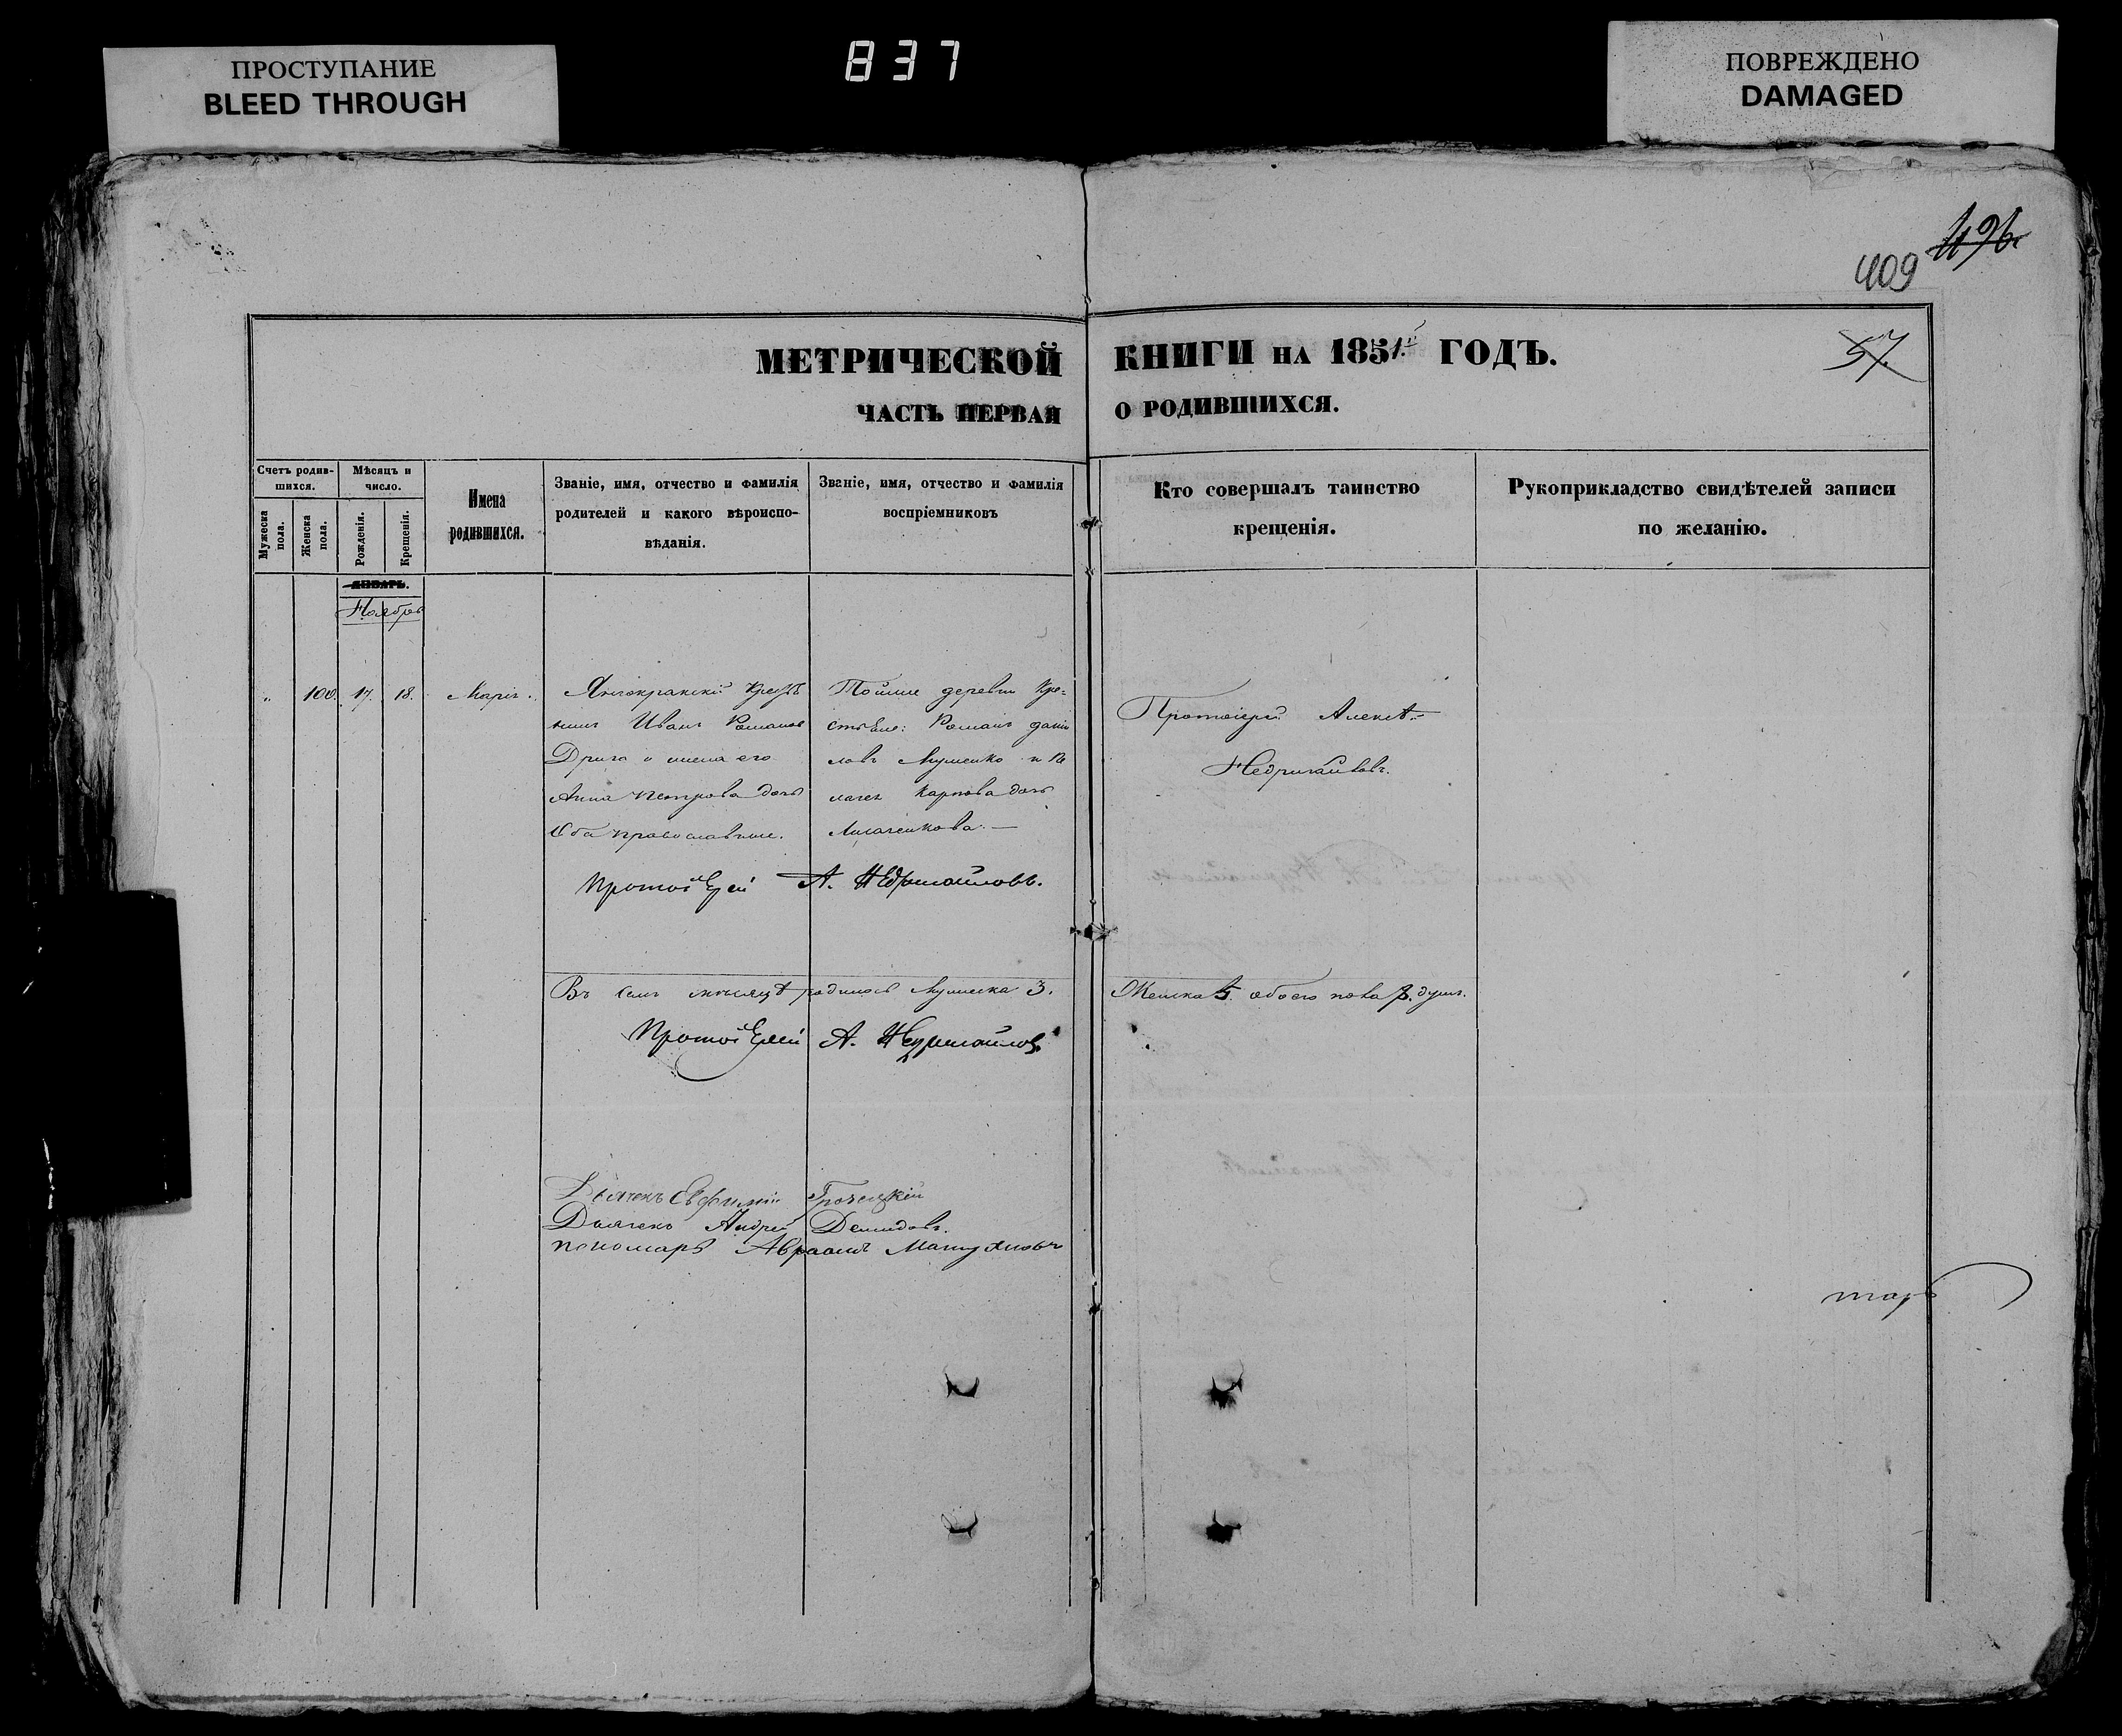 ПРОСТУПАНИЕ
BLEED THROUGH
837
ПОВРЕЖДЕНО
DAMAGED
496.
409
57.
МЕТРИЧЕСКОЙ КНИГИ НА 1851й ГОДЪ.
ЧАСТЬ ПЕРВАЯ О РОДИВШИХСЯ.
Счетъ родив-
шихся.
Мужеска пола.
Женска пола.
Мѣсяцъ и
число.
Рожденія.
Крещенія.
Имена
родившихся.
Званіе, имя, отчество и фамилія
родителей и какого вѣроиспо-
вѣданія.
Званіе, имя, отчество и фамилія
воспріемниковъ
Кто совершалъ таинство
крещенія.
Рукоприкладство свидѣтелей записи
по желанію.
ЯНВАРЬ.
Ноябрь
„ 100. 17. 18. Марія.
Иванъ Романовъ
Дрига и жена его
Анна Петрова дочь
Оба православные.
Тойже деревни Кре=
Романъ Дани
ловъ
Карпова дочь
Протоіерей Алексѣй
Недригайловъ.
Протоіерей А. Недригайловъ.
Въ семъ мѣсяцѣ родилось Мужеска 3. Женска 5. обоего пола 8. душъ.
Протоіерей А. Недригайловъ
Дьячекъ Евфимій Грочецкій
Дьячекъ Андрей Демидовъ.
пономарь Авраамъ
тарь